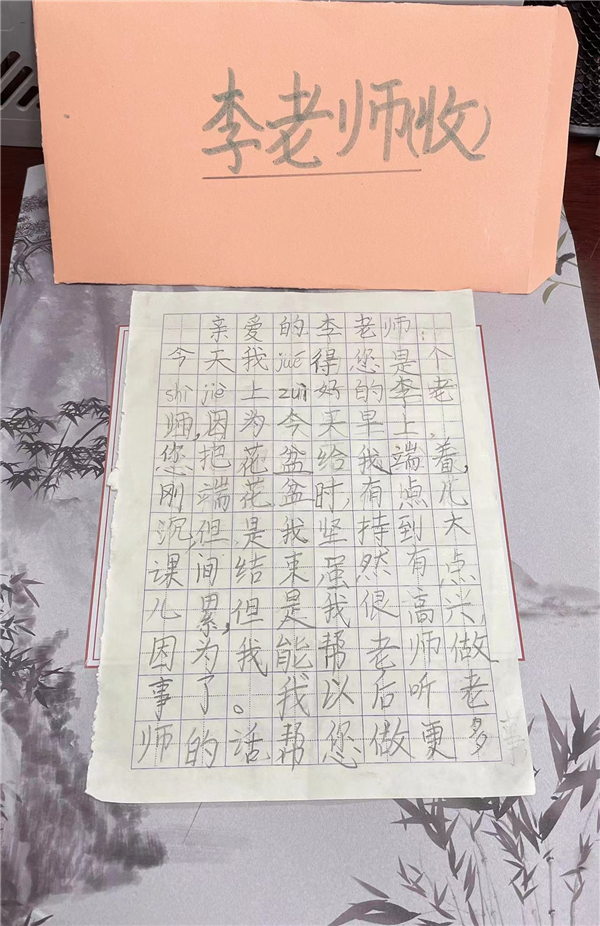 李老师(收)
亲爱的李老师:
今天我jué得您是个
shì jiè上zuì好的李老
师,因为今天早上,
您抱花盆给我端着,
刚端花盆时,有点儿
沉,但是我坚持到木
课间结束虽然有点
儿累,但是我很高兴,
因为我能帮老师做
事了。我以后听老
师的话帮您做更多
事